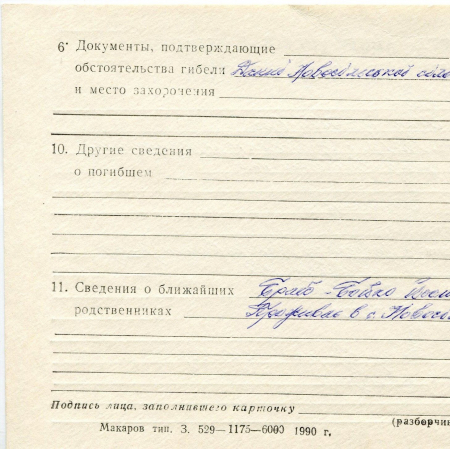 6· Документы, подтверждающие
обстоятельства гибели Дании Новосілської сіль
и место захоронения
10. Другие сведения
о погибшем
11. Сведения о ближайших Брат - Бойко
родственниках Проживає в с. Новосіл
Подпись лица, заполнившего карточку
(разборчив
Макаров тип. З. 529—1175—6000 1990 г.